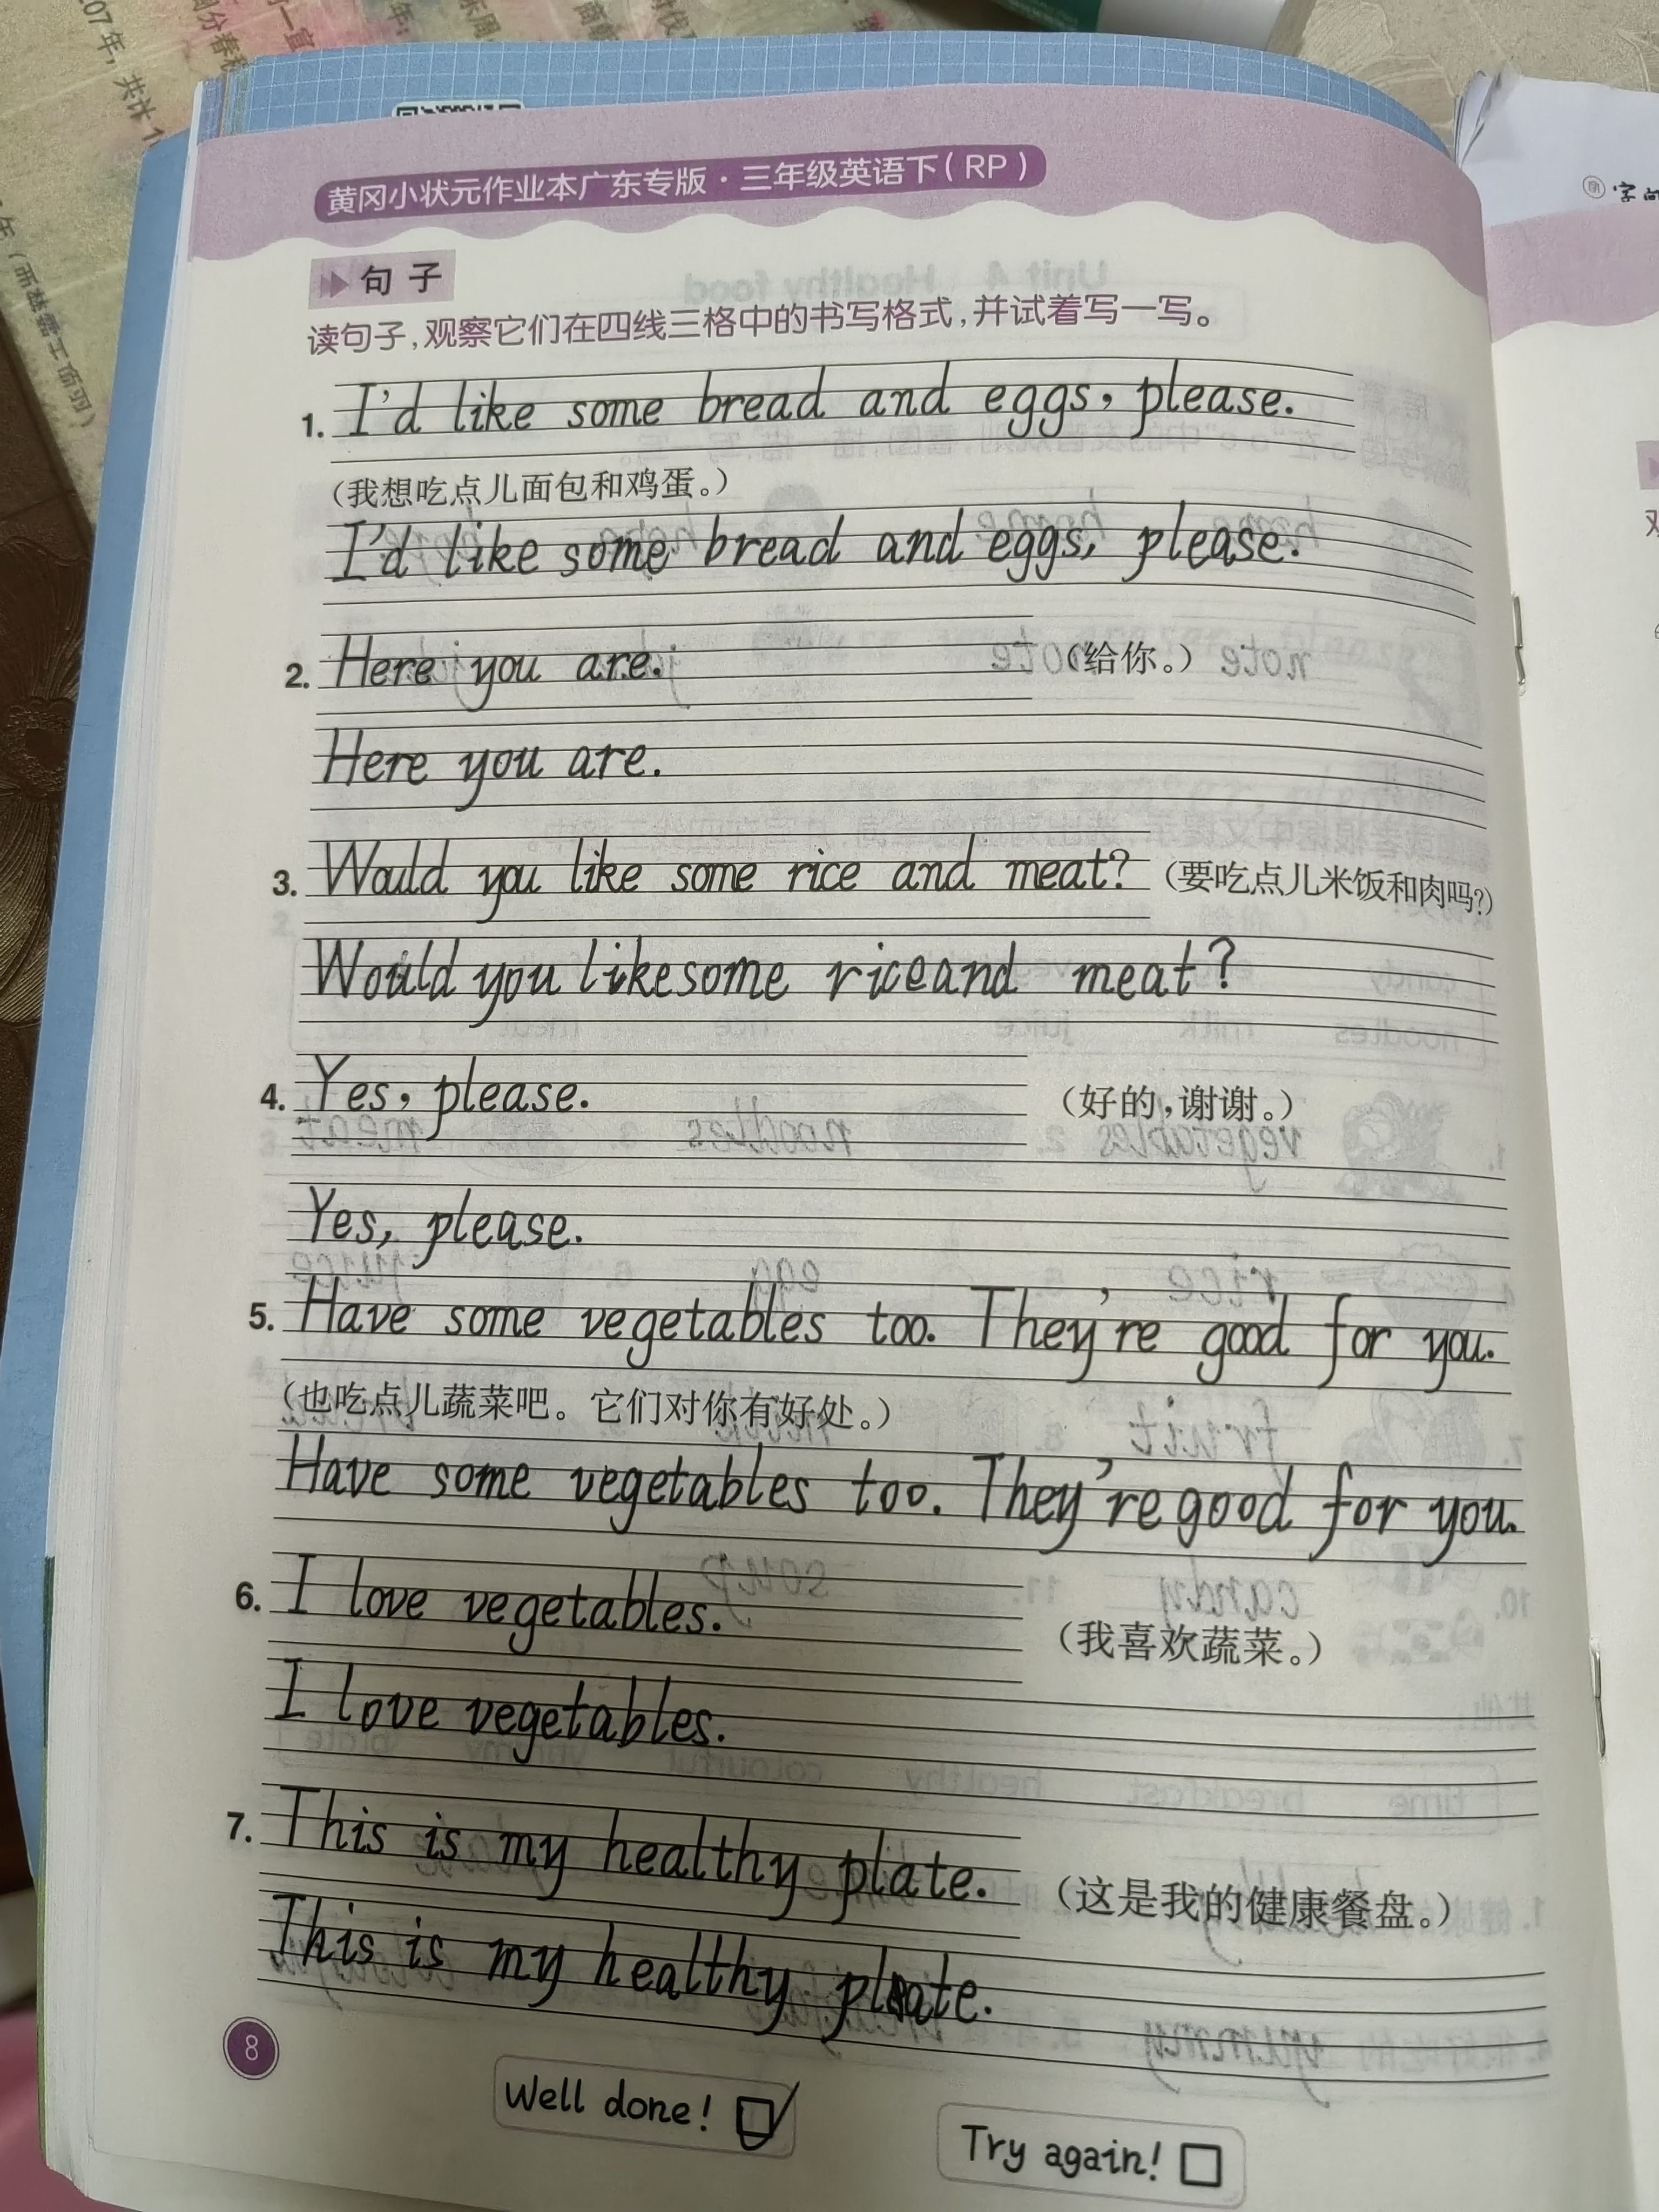 黄冈小状元作业本广东专版·三年级英语下(RP)
句子
读句子,观察它们在四线三格中的书写格式,并试着写一写。
1. I'd like some bread and eggs, please.
(我想吃点儿面包和鸡蛋。)
I'd like some bread and eggs, please.
2. Here you are. (给你。)
Here you are.
3. Would you like some rice and meat? (要吃点儿米饭和肉吗?)
Would you like some rice and meat?
4. Yes, please. (好的,谢谢。)
Yes, please.
5. Have some vegetables too. They're good for you.
(也吃点儿蔬菜吧。它们对你有好处。)
Have some vegetables too. They're good for you.
6. I love vegetables. (我喜欢蔬菜。)
I love vegetables.
7. This is my healthy plate. (这是我的健康餐盘。)
This is my healthy plate.
8
Well done!
Try again!